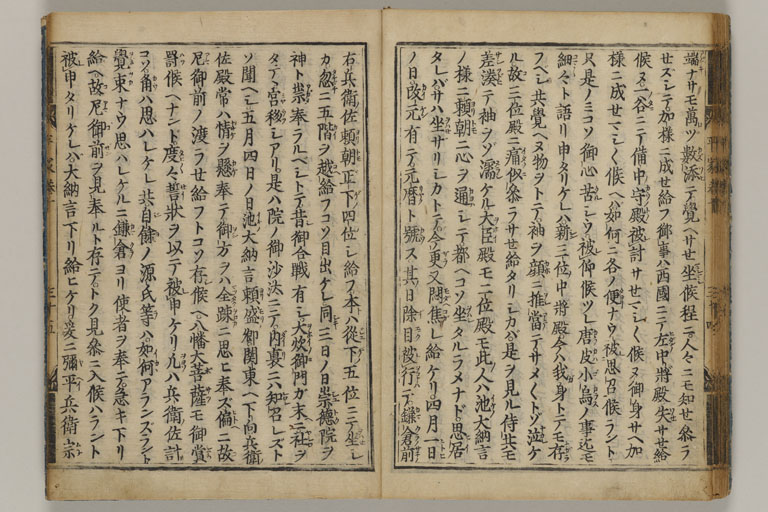 端ナサモ萬ツ數添テ覺ヘサセ坐候程ニ人々ニモ知セ參ラ
セズシテ加様ニ成セ給フ御事ハ西國ニテ左中將殿失サセ給
候ヌ一谷ニテ備中守殿被討サセマシマシ候ヌ御身サヘ加
様ニ成セマシマシ候ヘバ如何ニ各ノ便ナウ被思召候ラント
只是ノミコソ御心苦シウ被仰候ツレ唐皮小烏ノ事迄モ
細々ト語リ申タリケレバ新三位中將殿今ハ我身トテモ存
フベシ共覺ヘヌ物ヲトテ袖ヲ顔ニ推當テサメザメトゾ泣ケ
ル故三位殿ニ痛似參ラサせ給タリシカバ是ヲ見ル侍共モ
差湊テ袖ヲゾ濡ケル大臣殿モ二位殿モ此人ハ池大納言
ノ様ニ頼朝ニ心ヲ通シテ都ヘコソ坐タルラメナド思居
タレバサハ坐サリシカトテ今更又悶焦レ給ケリ四月一日
ノ日改元有テ元暦ト號ス其日除目被行テ鎌倉前
右兵衛佐頼朝正下四位シ給フ本ハ從下五位ニテ坐シ
カ忽ニ五階ヲ越給フコソ目出ケレ同三日ノ日崇德院ヲ
神ト崇奉ラルベシトテ昔御合戰有シ大炊御門ガ末ニ社ヲ
タテヽ宮移シアリ是ハ院ノ御沙汰ニテ内裏ニハ知召レズト
ゾ聞ヘシ五月四日ノ日池大納言頼盛卿關東ヘ下向兵衛
佐殿常ハ情ヲ懸奉テ御方ヲバ全踈ニ思ヒ奉ズ偏ニ故
尼御前ノ渡ラせ給フトコソ存候ヘ八幡大菩薩モ御賞
罰候ヘナント度々誓状ヲ以テ被申ケリ凡ハ兵衛佐計
コソ角ハ思ハレケレ共自餘ノ源氏等ハ如何アランズラント
覺束ナウ思ハレケルニ鎌倉ヨリ使者ヲ奉テ急キ下リ
給ヘ故尼御前ヲ見奉ルト存テトク見參ニ入候ハラント
被申タリケレバ大納言下リ給ヒケリ爰ニ彌平兵衛宗